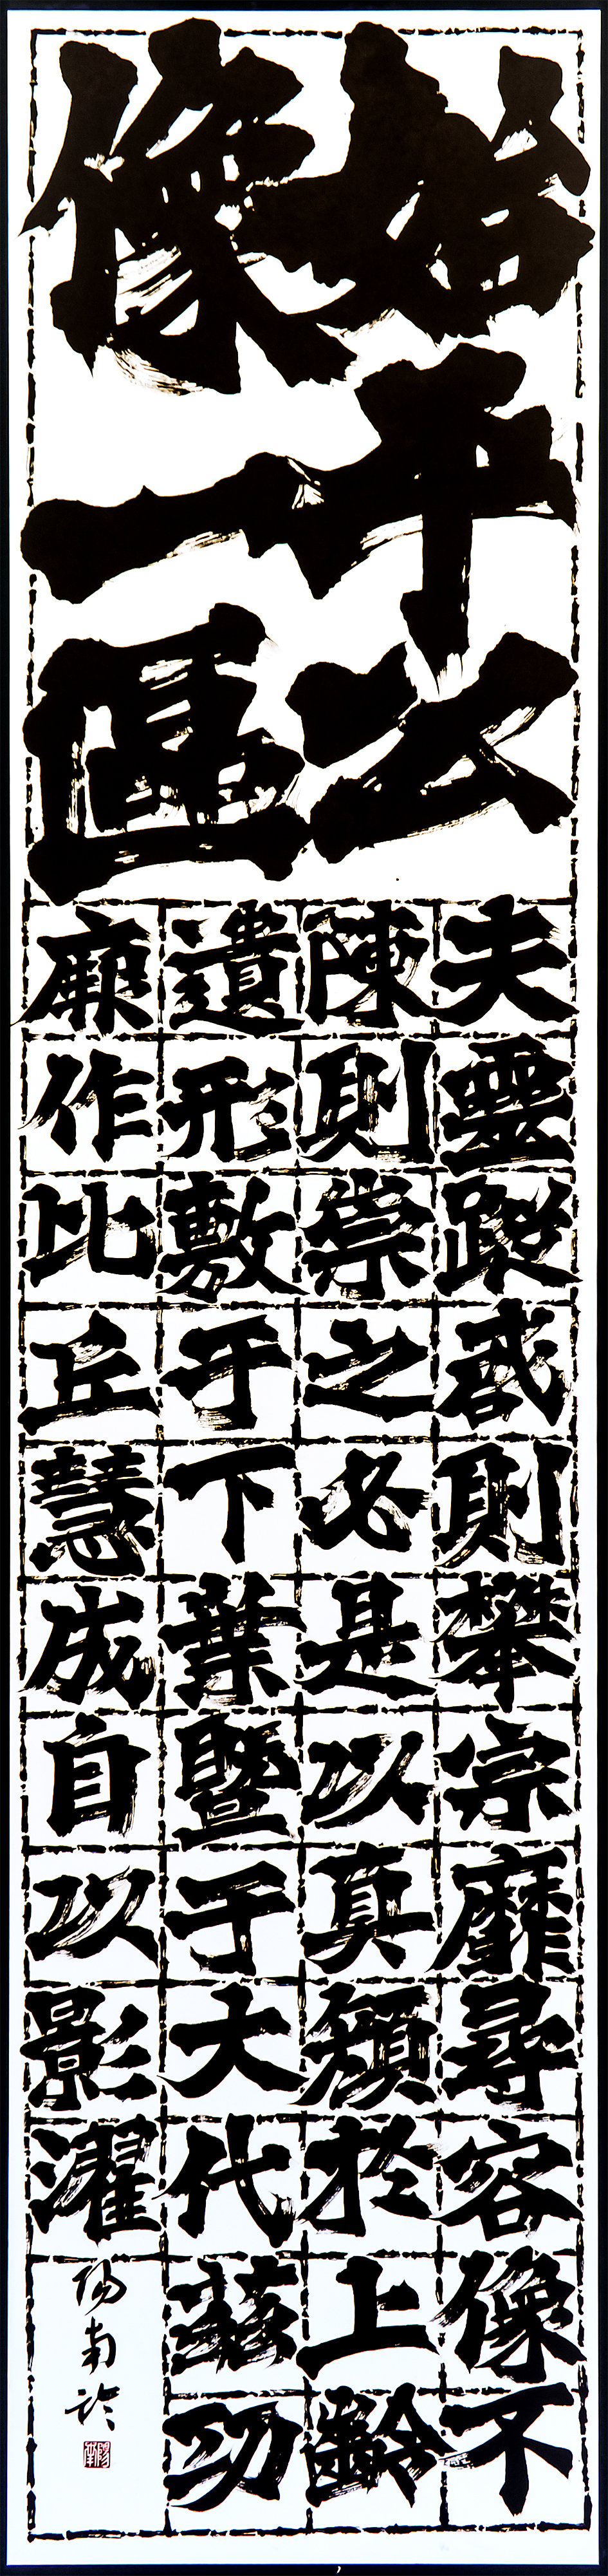 始平公
像一區
夫靈蹤啟則攀宗靡尋容像不
陳則崇之必是以真顏於上齡
遺形敷乎下葉暨于大代茲功
厥作比丘慧成自以影濯
陽南